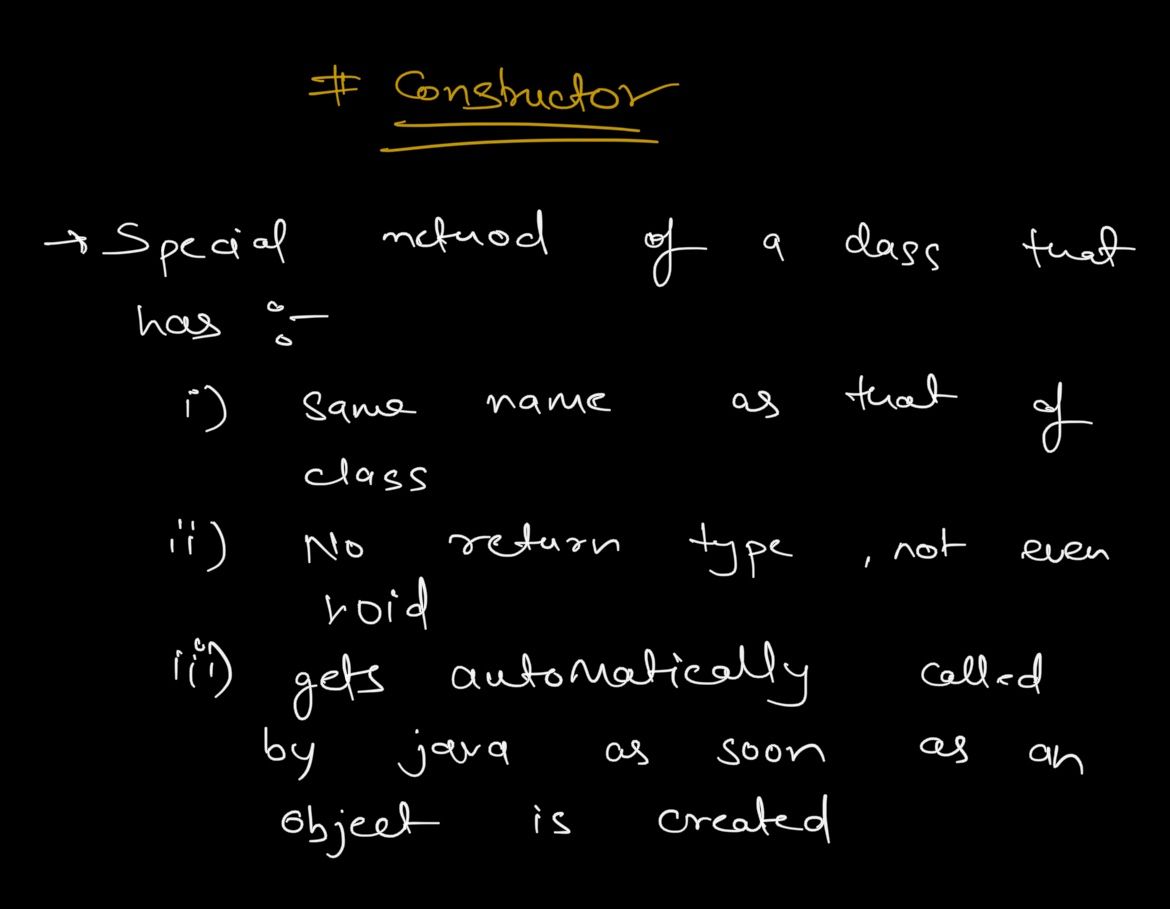 # Constructor
→ Special method of a class that
has :-
i) same name as that of
class
ii) No return type, not even
void
iii) gets automatically called
by java as soon as an
object is created